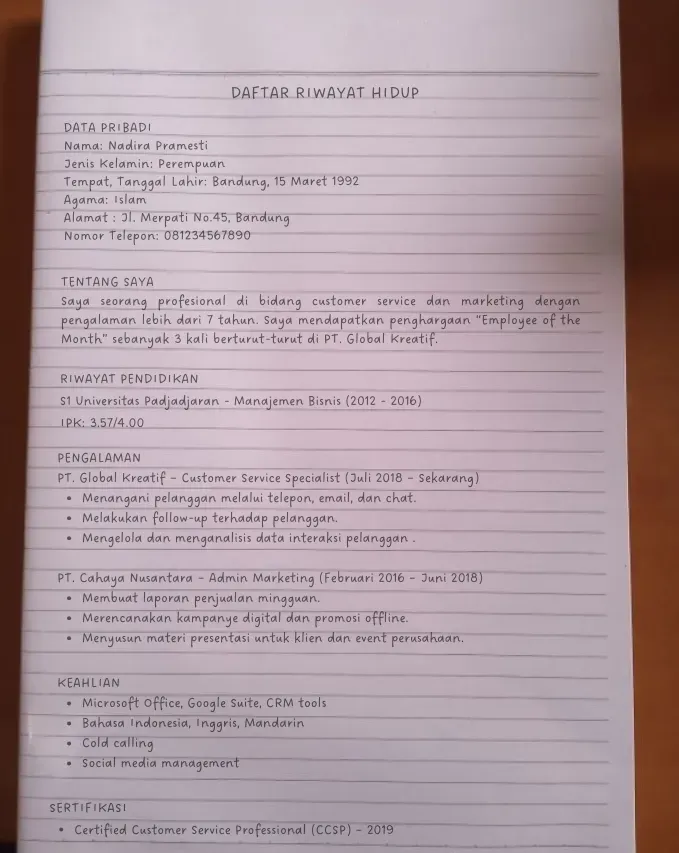 DAFTAR RIWAYAT HIDUP
DATA PRIBADI
Nama: Nadira Pramesti
Jenis Kelamin: Perempuan
Tempat, Tanggal Lahir: Bandung, 15 Maret 1992
Agama: Islam
Alamat : Jl. Merpati No.45, Bandung
Nomor Telepon: 081234567890
TENTANG SAYA
Saya seorang profesional di bidang customer service dan marketing dengan
pengalaman lebih dari 7 tahun. Saya mendapatkan penghargaan "Employee of the
Month" sebanyak 3 kali berturut-turut di PT. Global Kreatif.
RIWAYAT PENDIDIKAN
S1 Universitas Padjadjaran - Manajemen Bisnis (2012 - 2016)
IPK: 3.57/4.00
PENGALAMAN
PT. Global Kreatif – Customer Service Specialist (Juli 2018 – Sekarang)
• Menangani pelanggan melalui telepon, email, dan chat.
• Melakukan follow-up terhadap pelanggan.
• Mengelola dan menganalisis data interaksi pelanggan .
PT. Cahaya Nusantara – Admin Marketing (Februari 2016 – Juni 2018)
• Membuat laporan penjualan mingguan.
• Merencanakan kampanye digital dan promosi offline.
• Menyusun materi presentasi untuk klien dan event perusahaan.
KEAHLIAN
• Microsoft Office, Google Suite, CRM tools
• Bahasa Indonesia, Inggris, Mandarin
• Cold calling
• Social media management
SERTIFIKASI
• Certified Customer Service Professional (CCSP) – 2019